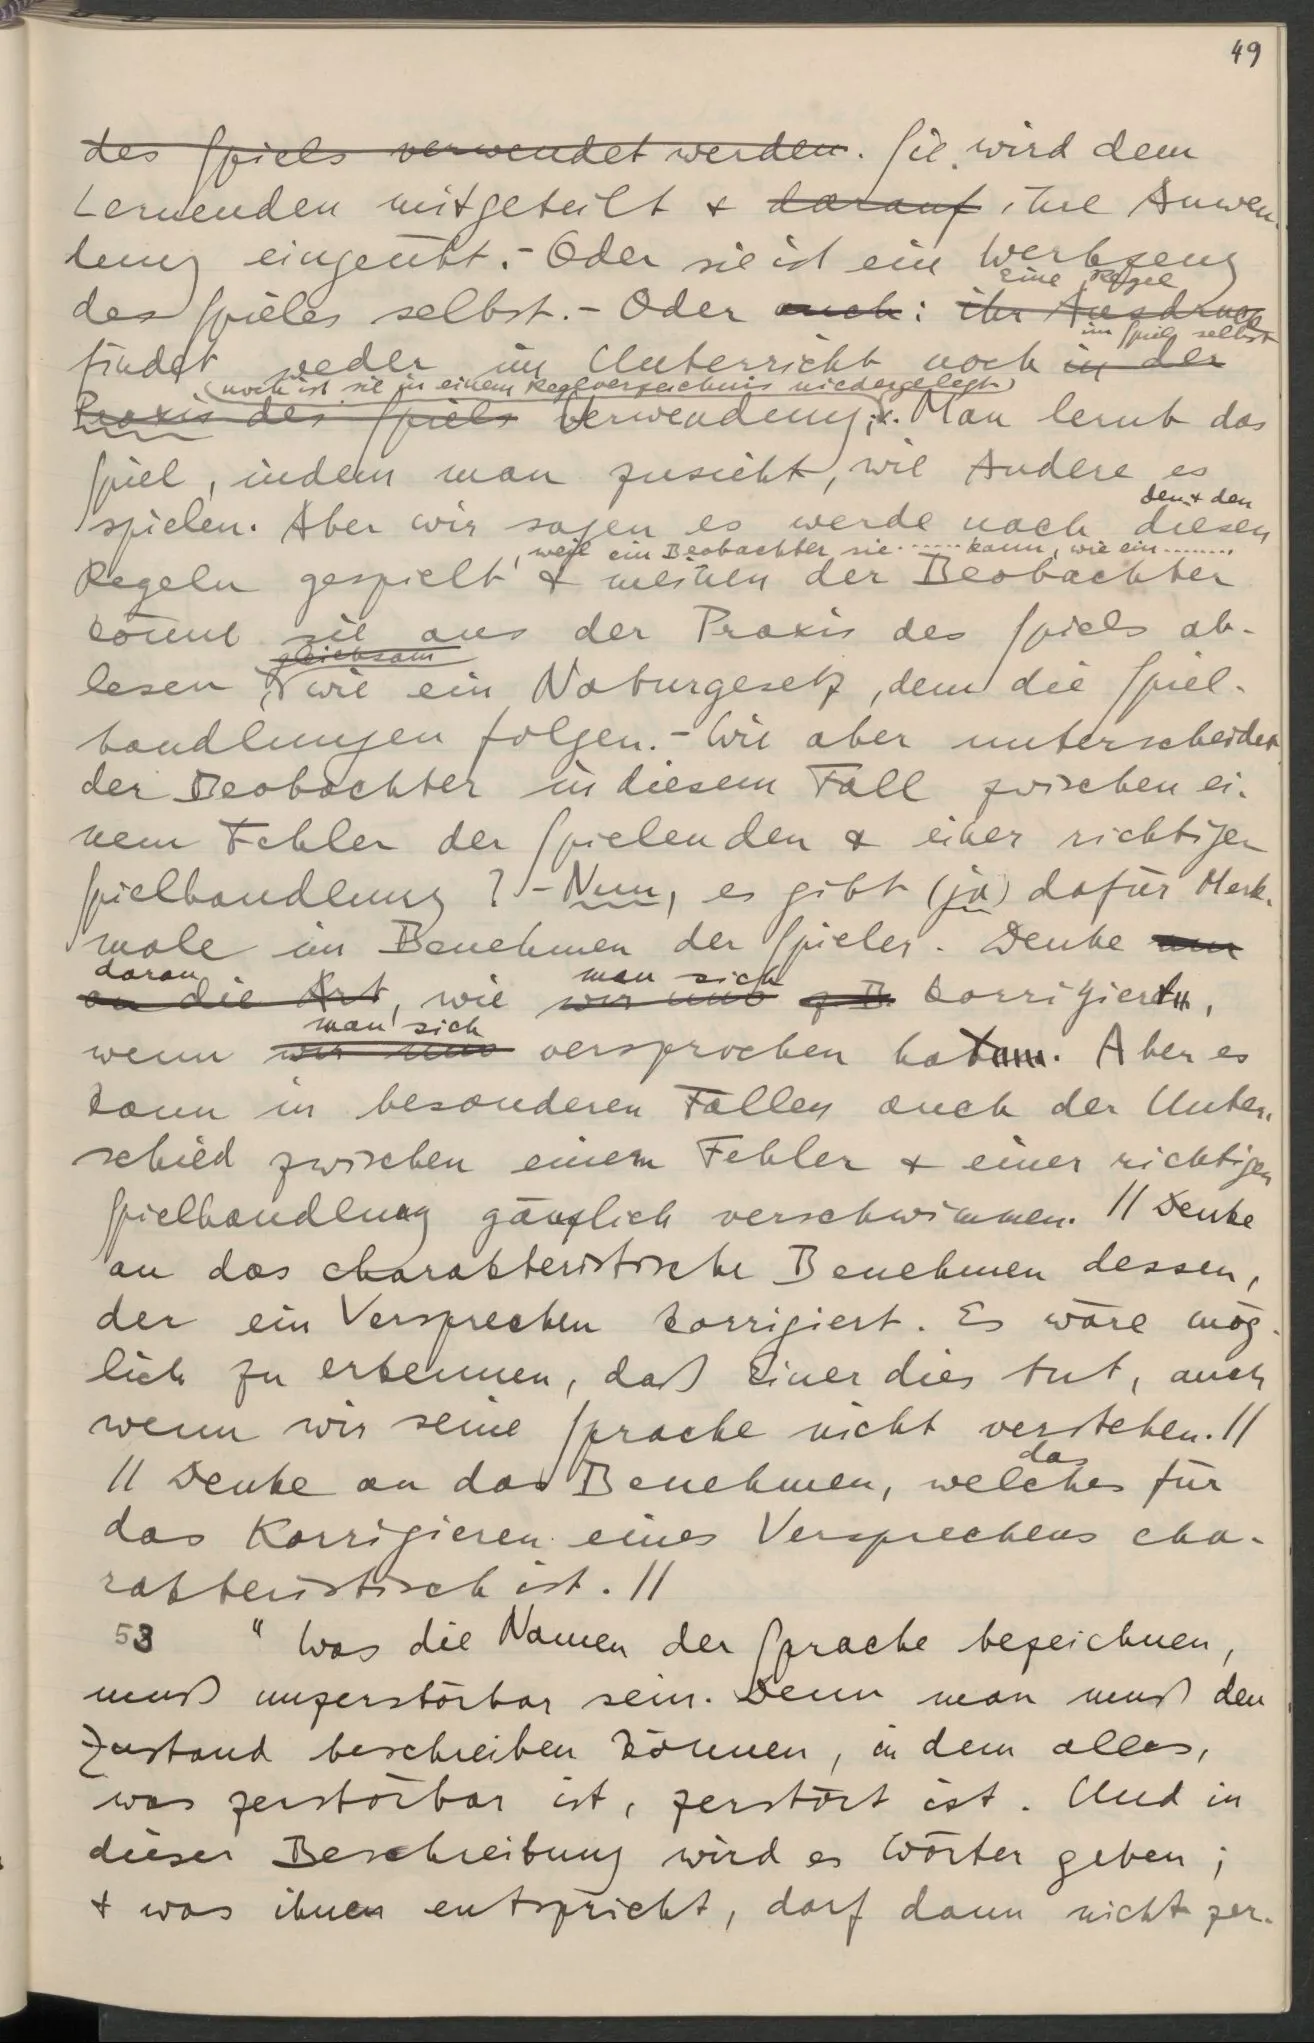 49
des Spiels verwendet werden. Sie wird dem
Lernenden mitgeteilt & darauf ihre Anwen-
dung eingeübt. – Oder sie ist ein Werkzeug
eine Regel
des Spieles selbst. – Oder auch: ihr Ausdruck
im Spiel selbst
findet weder im Unterricht noch in der
(noch ist sie in einem Regelverzeichnis niedergelegt)
Praxis des Spiels Verwendung; . Man lernt das
Spiel, indem man zusieht, wie Andere es
den & den
spielen. Aber wir sagen es werde nach diesen
, weil ein Beobachter sie ...... kann, wie ein ........
Regeln gespielt & meinen der Beobachter
könne sie aus der Praxis des Spiels ab-
gleichsam
lesen, wie ein Naturgesetz, dem die Spiel-
handlungen folgen. – Wie aber unterscheidet
der Beobachter in diesem Fall zwischen ei-
nem Fehler der Spielenden & einer richtigen
Spielhandlung? – Nun, es gibt (ja) dafür Merk-
male im Benehmen der Spieler. Denke nun
daran man sich
an die Art, wie wir uns z.B. korrigiert,
man sich
wenn wir uns versprochen hat. Aber es
kann in besonderen Fällen auch der Unter-
schied zwischen einem Fehler & einer richtigen
Spielhandlung gänzlich verschwimmen. // Denke
an das charakteristische Benehmen dessen,
der ein Versprechen korrigiert. Es wäre mög-
lich zu erkennen, daß Einer dies tut, auch
wenn wir seine Sprache nicht verstehen. //
das
// Denke an das Benehmen, welches für
das Korrigieren eines Versprechens cha-
rakteristisch ist. //
53 "Was die Namen der Sprache bezeichnen,
muß unzerstörbar sein. Denn man muß den
Zustand beschreiben können, in dem alles,
was zerstörbar ist, zerstört ist. Und in
dieser Beschreibung wird es Wörter geben;
& was ihnen entspricht, darf dann nicht zer-